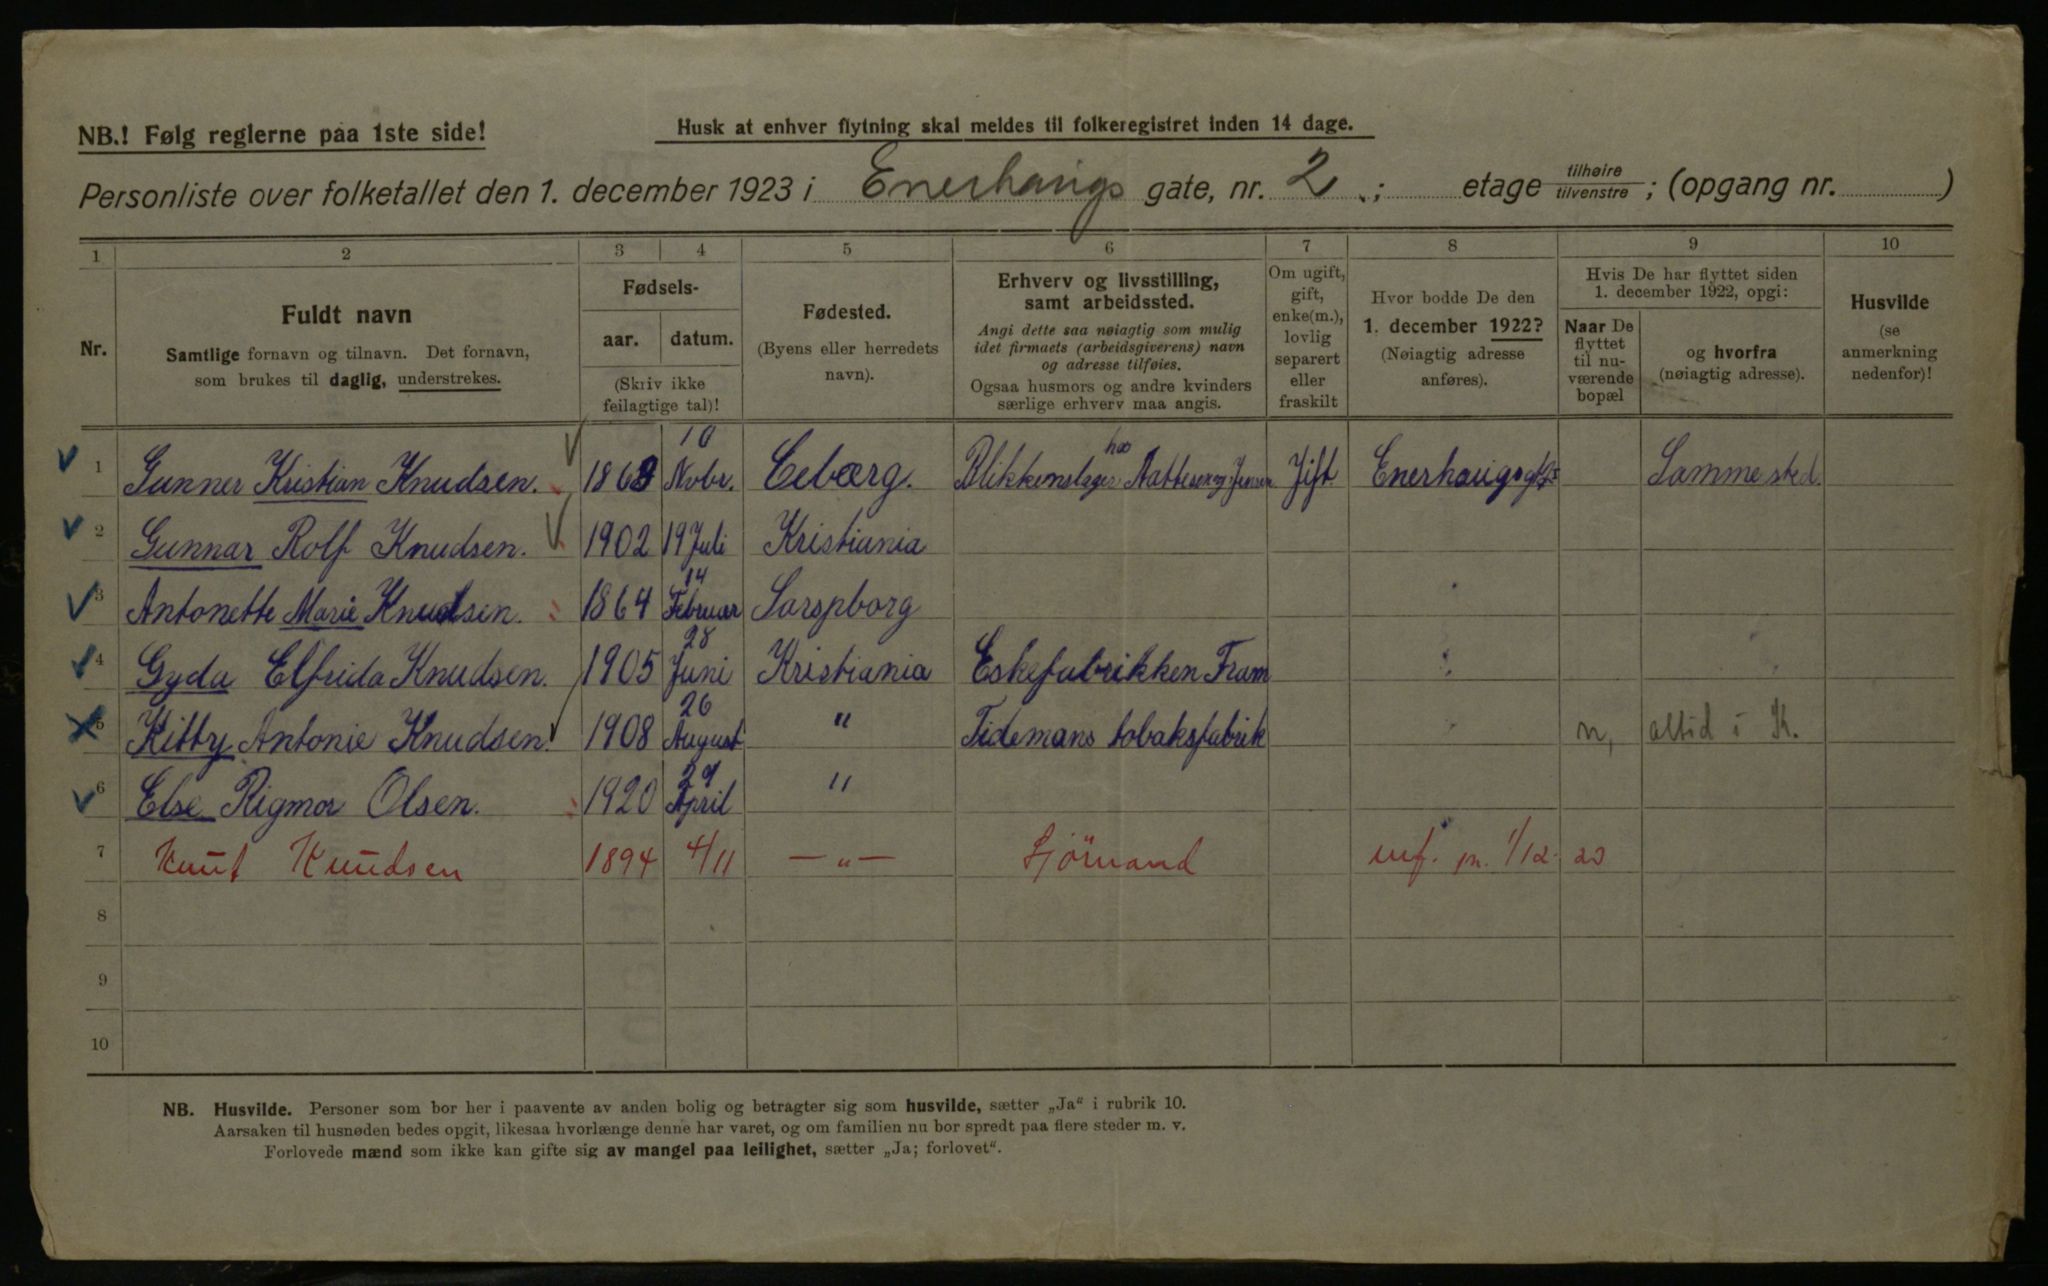 NB.! Følg reglerne paa 1ste side!
Husk at enhver flytning skal meldes til folkeregistret inden 14 dage.
Personliste over folketallet den 1. december 1923 i Enerhaugs gate, nr. 2 ; etage tilhøire/tilvenstre ; (opgang nr. )
1 2 3 4 5 6 7 8 9 10
Nr.
Fuldt navn
Samtlige fornavn og tilnavn. Det fornavn,
som brukes til daglig, understrekes.
Fødsels-
aar. datum.
(Skriv ikke
feilagtige tal)!
Fødested.
(Byens eller herredets
navn).
Erhverv og livsstilling,
samt arbeidssted.
Angi dette saa nøiagtig som mulig
idet firmaets (arbeidsgiverens) navn
og adresse tilføies.
Ogsaa husmors og andre kvinders
særlige erhverv maa angis.
Om ugift,
gift,
enke(m.),
lovlig
separert
eller
fraskilt
Hvor bodde De den
1. december 1922?
(Nøiagtig adresse
anføres).
Hvis De har flyttet siden
1. december 1922, opgi:
Naar De
flyttet
til nu-
værende
bopæl
og hvorfra
(nøiagtig adresse).
Husvilde
(se
anmerkning
nedenfor)!
1 Gunner Kristian Knudsen. 1863 10 Novbr. Ceberg. Blikkenslager hos Jensen Gift Enerhaugsgt Samme sted.
2 Gunnar Rolf Knudsen. 1902 19 Juli Kristiania
3 Antonette Marie Knudsen. 1864 14 Februar Sarspborg
4 Gyda Elfrida Knudsen. 1905 28 Juni Kristiania Eskefabrikken Fram
5 Kitty Antonie Knudsen. 1908 26 August " Tidemans tobaksfabrik n, altid i K.
6 Else Rigmor Olsen. 1920 29 April "
7 Knut Knudsen 1894 4/11 — " — Sjömand 1/12 23
8
9
10
NB. Husvilde. Personer som bor her i paavente av anden bolig og betragter sig som husvilde, sætter „Ja“ i rubrik 10.
Aarsaken til husnøden bedes opgit, likesaa hvorlænge denne har varet, og om familien nu bor spredt paa flere steder m. v.
Forlovede mænd som ikke kan gifte sig av mangel paa leilighet, sætter „Ja; forlovet“.